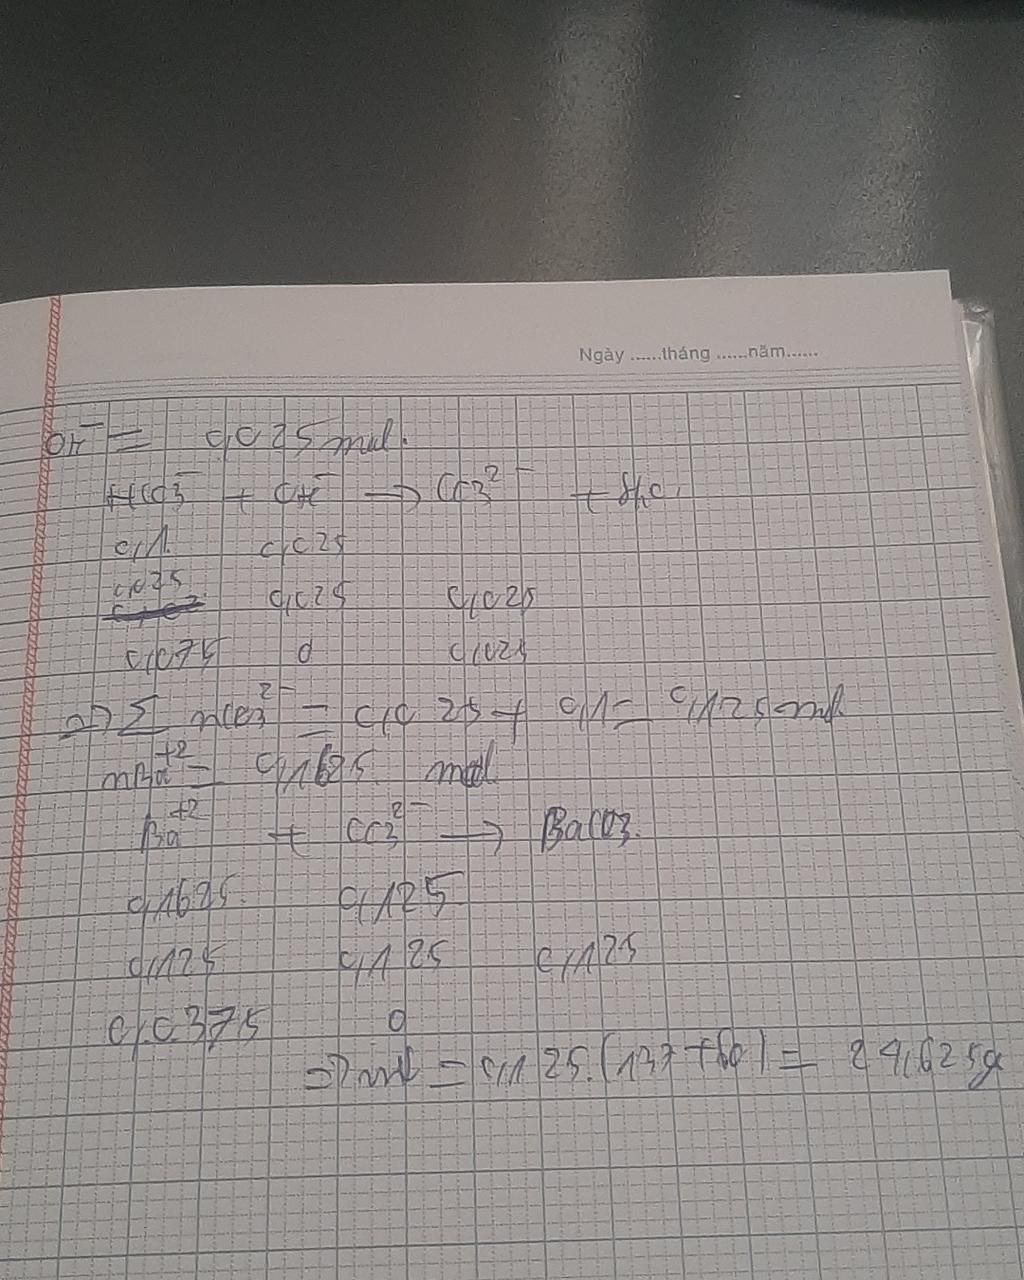 Ngày ......tháng ......năm......
OH⁻ = 0,025 mol.
HCO3⁻ + OH⁻ → CO3²⁻ + H2O
0,1 0,025
0,025 0,025 0,025
0,075 0 0,025
=> Σ nCO3²⁻ = 0,025 + 0,1 = 0,125 mol
nBa⁺² = 0,1625 mol
Ba⁺² + CO3²⁻ → BaCO3.
0,1625 0,125
0,125 0,125 0,125
0,0375 0
=> m↓ = 0,125.(137+60) = 24,625g